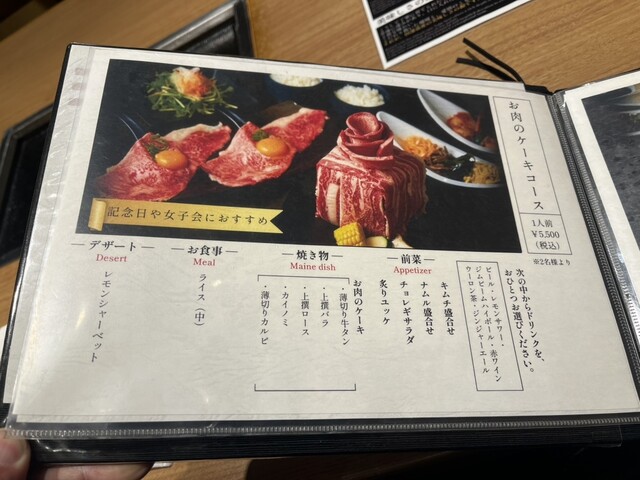 お肉のケーキコース
1人前
¥5,500
(税込)
※2名様より
記念日や女子会におすすめ
次の中からドリンクを、
おひとつお選びください。
ビール・レモンサワー・
ジムビームハイボール・赤ワイン
ウーロン茶・ジンジャーエール
前菜
Appetizer
キムチ盛合せ
ナムル盛合せ
チョレギサラダ
炙りユッケ
焼き物
Maine dish
お肉のケーキ
・薄切り牛タン
・上撰バラ
・上撰ロース
・カイノミ
・薄切りカルビ
お食事
Meal
ライス(中)
デザート
Desert
レモンシャーベット